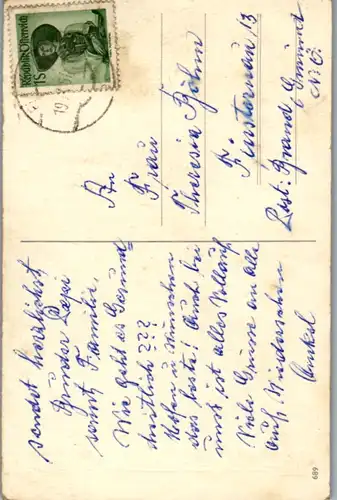 Republik Österreich
1 S
19
An
Frau
Theresia Böhm
Finsternau, 13
Post: Brand, Gmünd
N.Ö.
sendet herzlichst
Bruder Pepi
samt Familie.
Wie geht es Gesund-
heitlich???
Hoffen u. wünschen
das beste! Auch bei
uns ist alles wohlauf
Viele Grüsse an Alle
Auf Wiedersehen
Onkel
689